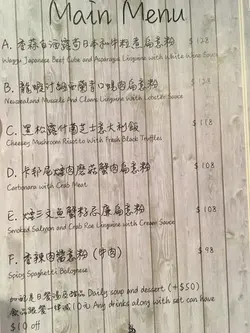 Main Menu
A. 香蒜白酒露筍日本和牛粒扁意粉 $128
Wagyu Japanese Beef Cube and Asparagus Linguine with White Wine
B. 龍蝦汁 青口 扁意粉 $128
Newzealand Mussels And Clams Linguine With Lobster Sauce
C. 黑松露什菌芝士意大利飯 $118
Cheesey Mushroom Risotto With Fresh Black Truffles
D. 卡邦尼 蘑菇蟹肉扁意粉 $108
Carbonara with Crab Meat
E. 煙三文魚蟹籽忌廉扁意粉 $108
Smoked Salmon and Crab Roe Linguine with Cream Sauce
F. 香辣肉醬意粉 (牛肉) $98
Spicy Spaghetti Bolognese
如配是日餐湯及甜品 Daily soup and dessert (+$50)
飲品跟餐一律減10元 Any drinks along with set can have
$10 off